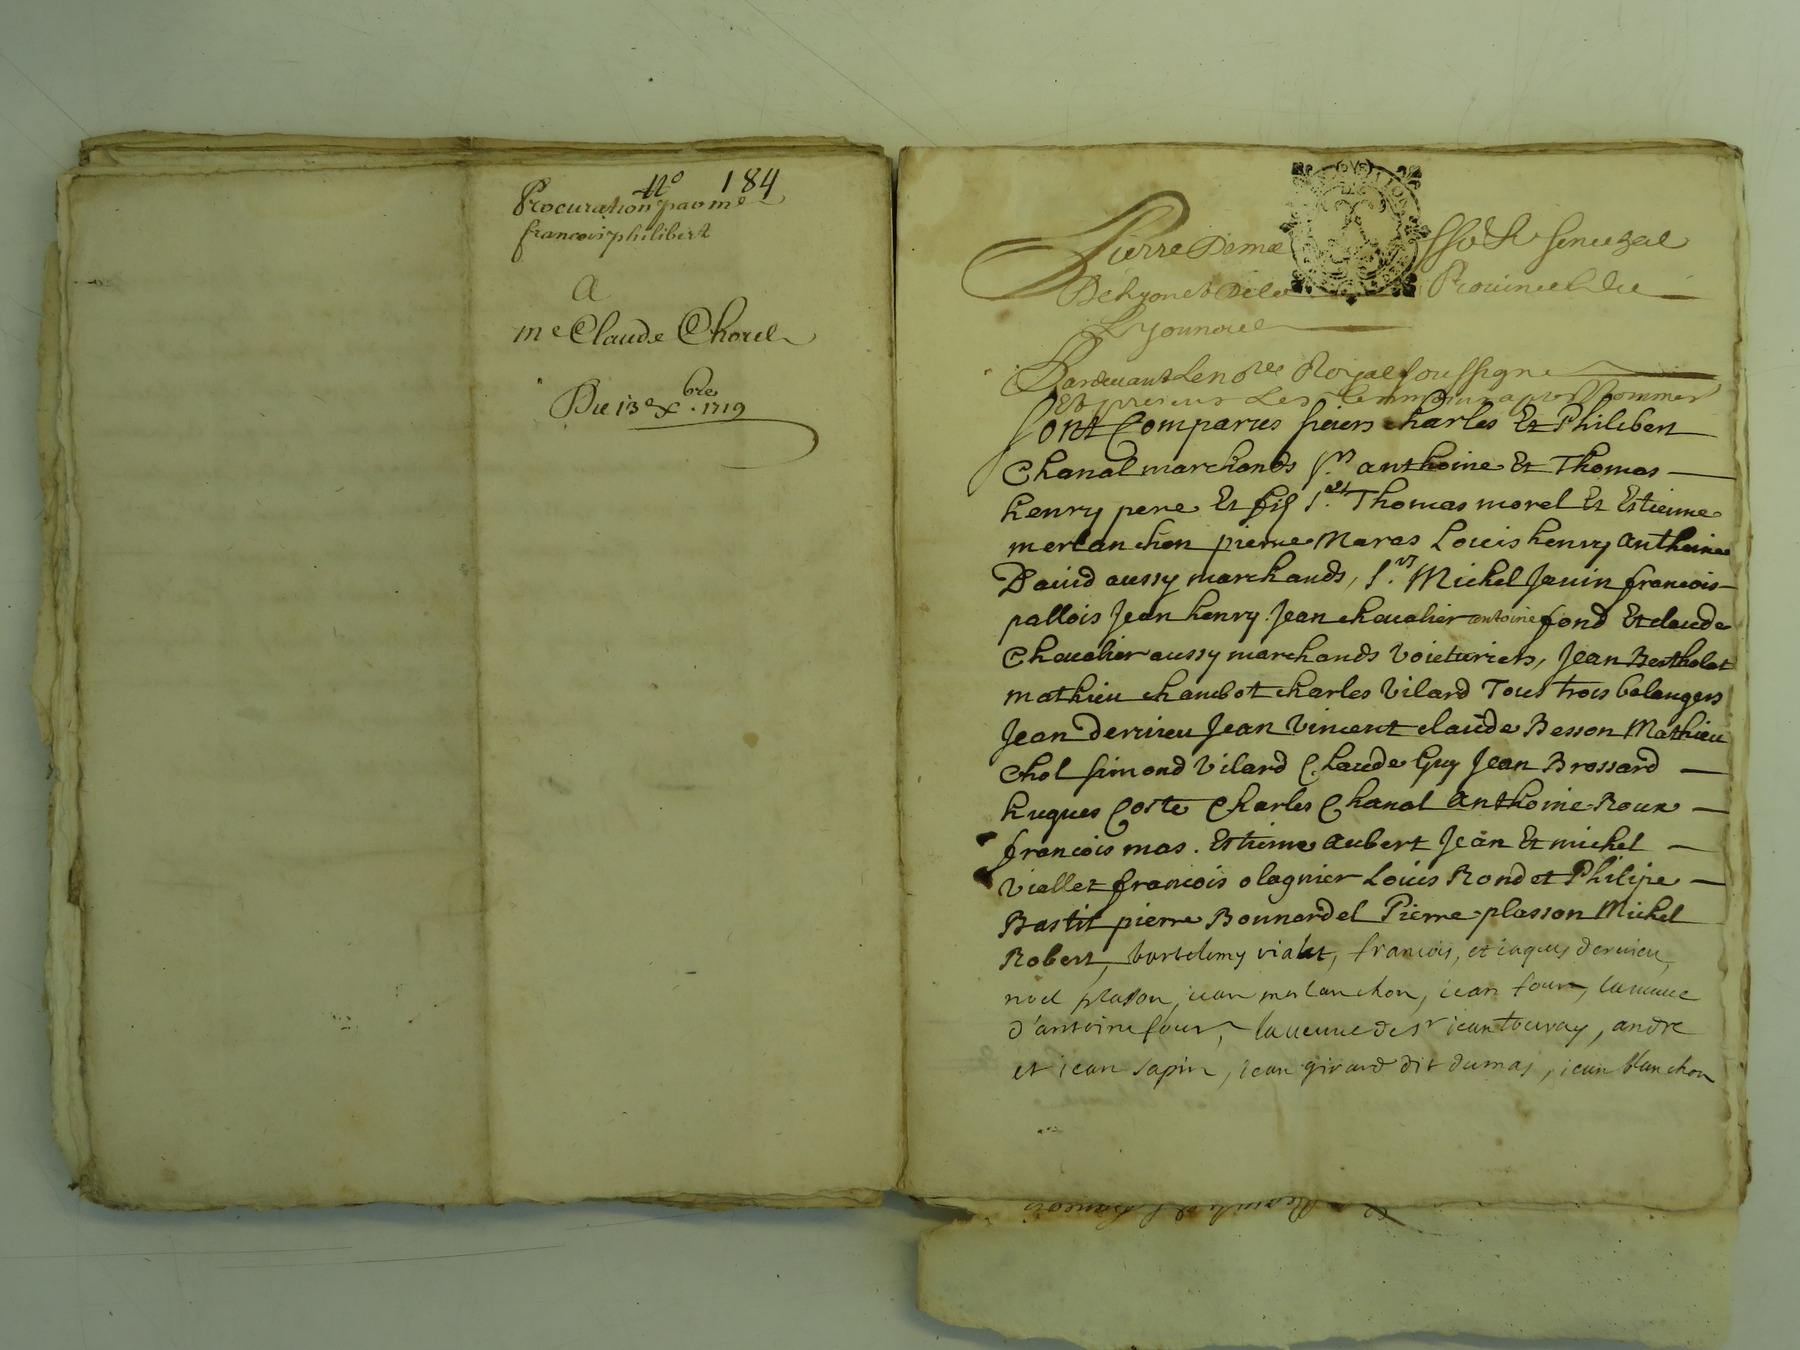 n° 184
Procuration par me
francois philibert
a
me Claude Chorel
Du 13e xbre 1719
Pierre Dema
De Lyon et De la Province De
Lyonnois
Pardevant Le no.re Royal soussigné
Et presens Les temoins apres nommes
sont Comparus sieurs charles Et Philibert
Chanal marchands s.rs anthoine Et Thomas
henry pere Et fils s.rs Thomas morel Et Estienne
merlanchon pierre Maras Louis henry anthoine
David aussy marchands, s.rs Michel Janin francois
pallois Jean henry Jean chevalier antoine fond Et claude
Chevalier aussy marchands Voituriers, Jean Bertholat
mathieu chambot charles Vilard Tous trois bolangers
Jean Dervieu Jean Vincent claude Besson Mathieu
Chol simond Vilard Claude Guy Jean Brossard
hugues Coste Charles Chanal Anthoine Roux
francois mas. Estienne aubert Jean Et michel
Viallet francois olagnier Louis Rondet Philipe
Bastit pierre Bonnardel Pierre plasson Michel
Robert, bartelemy vialet, francois, et iaques dervieu,
noel plasson, iean merlanchon, iean four, la veuve
d'antoine four, la veuve de sr iean touvay, andre
et iean sapin, iean girard dit dumas, iean blanchon